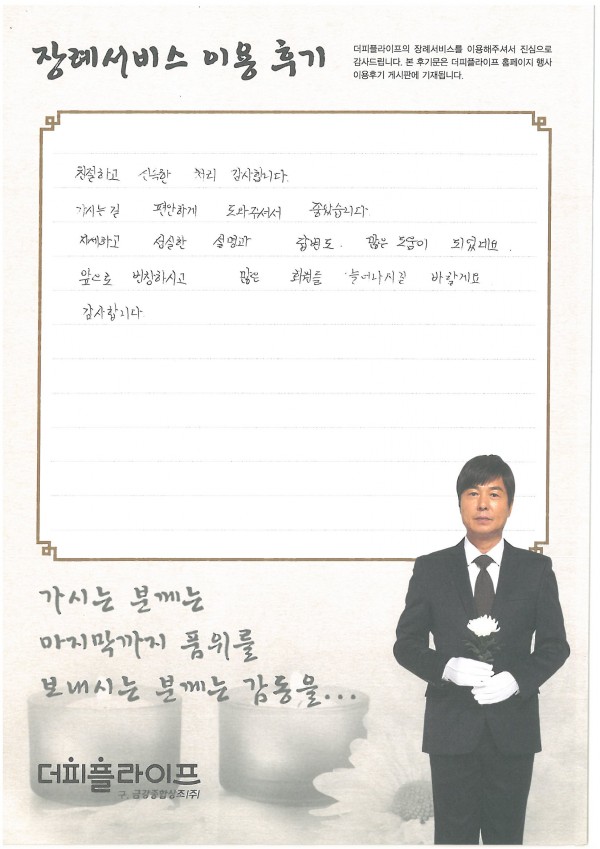 장례서비스 이용 후기
더피플라이프의 장례서비스를 이용해주셔서 진심으로
감사드립니다. 본 후기문은 더피플라이프 홈페이지 행사
이용후기 게시판에 기재됩니다.
친절하고 신속한 처리 감사합니다.
가시는 길 편안하게 도와주셔서 좋았습니다
자세하고 성실한 설명과 답변도. 많은 도움이 되었네요.
앞으로 번창하시고 많은 회원들 늘어나시길 바랄게요
감사합니다
가시는 분께는
마지막까지 품위를
보내시는 분께는 감동을...
더피플라이프
구. 금강종합상조(주)